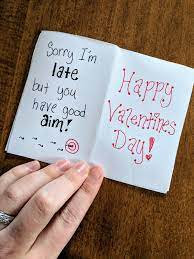 Sorry I'm
late
but you
have good
aim!
Happy
Valentines
Day!